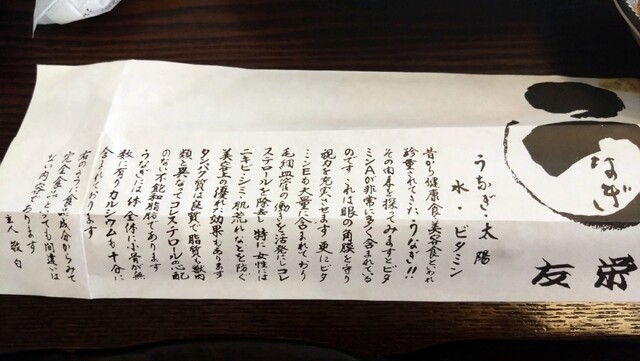 うなぎ
友栄
うなぎ・太陽
水・ビタミン
昔から健康食・美容食といわれ
珍重されてきた・うなぎ!!
その内容を探ってみますとビタ
ミンAが非常に多く含まれている
のです これは眼の角膜を守り
視力を充实させます 更にビタ
ミンEも大量に含まれており
毛細血管の働きを活発にしコレ
ステロールを除去し 特に女性には
ニキビ・シミ・肌荒れなどを防ぐ
美容上の優れた効果もあります
タンパク質は良質で脂質も獣肉
類と異なりコレステロールの心配
のない不飽和脂肪であります
うなぎには体全体に小骨が無
数に有りカルシウムも十分に
含まれております
右のように食品成分からみて
完全食品といっても間違いは
ない内容であります
主人 敬白